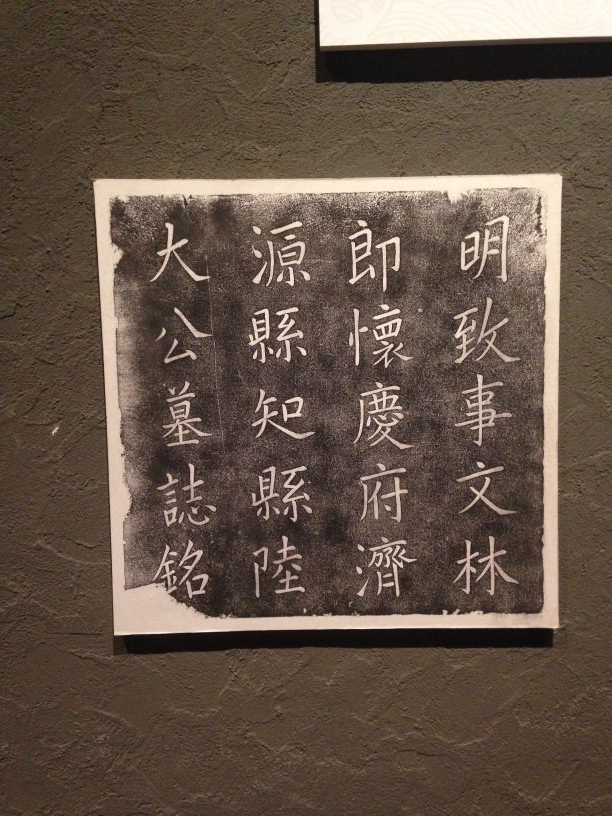 明致事文林
郎懷慶府濟
源縣知縣陸
大公墓誌銘